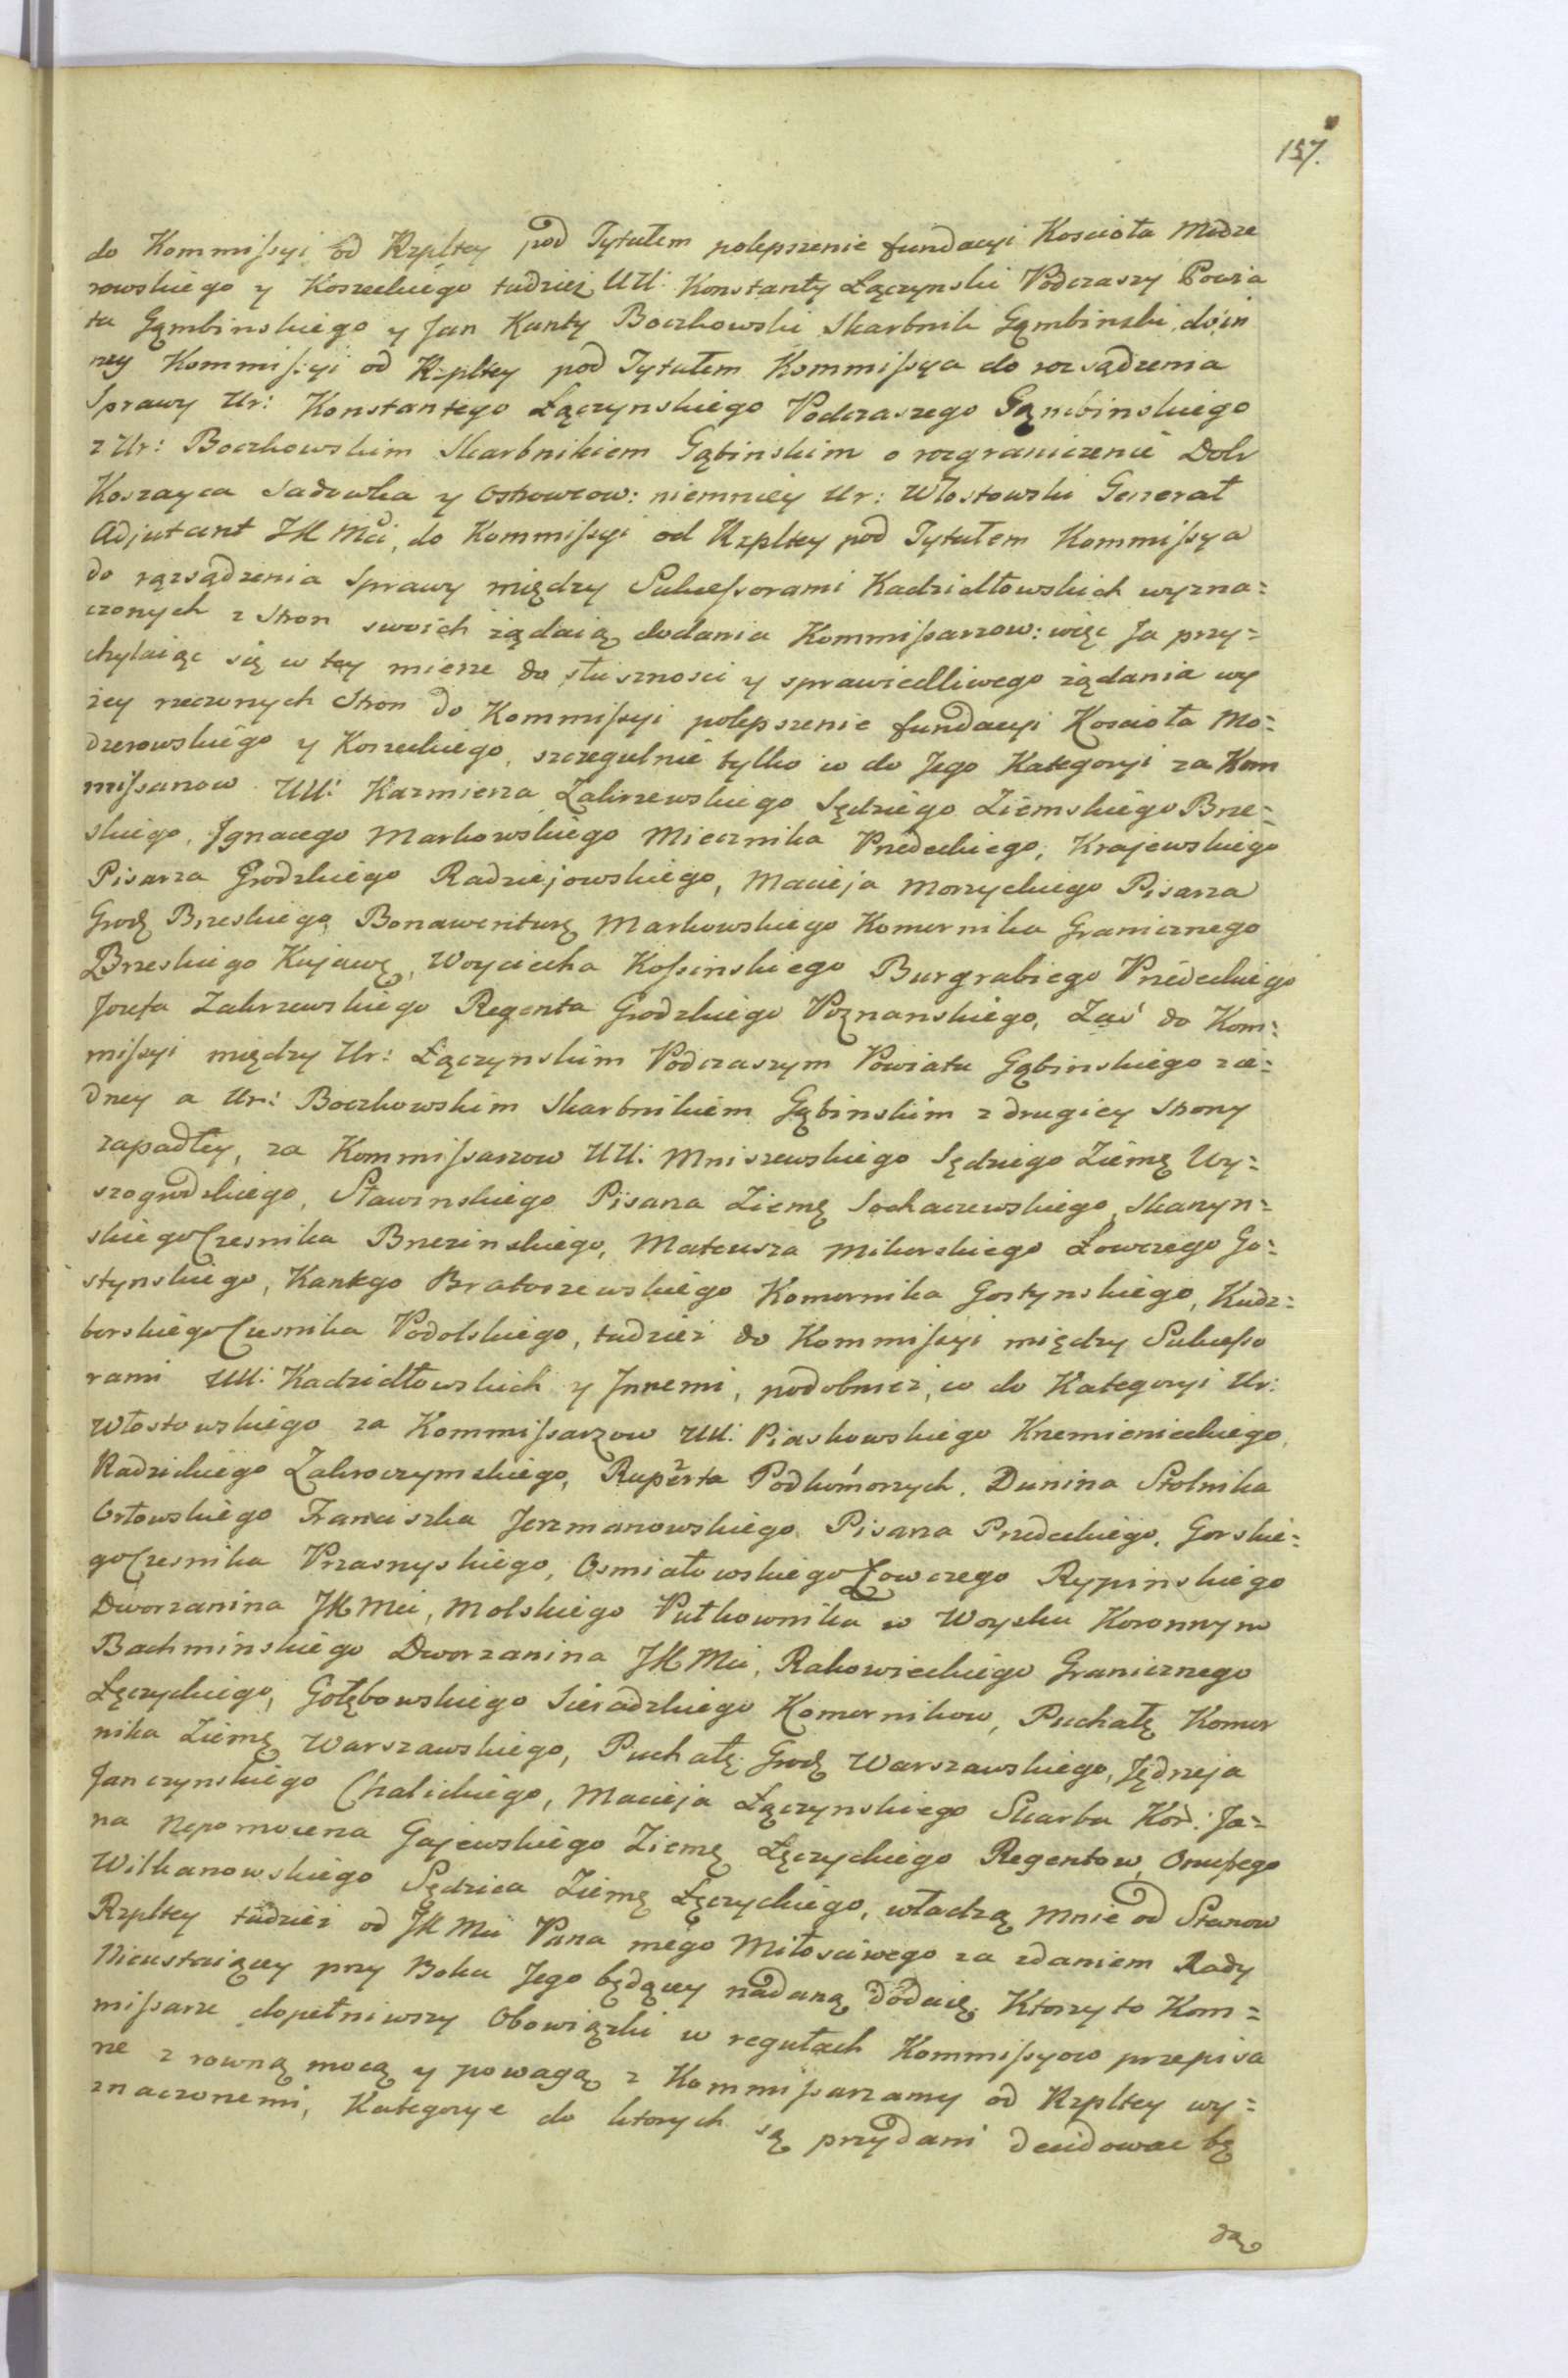 157.
do Kommissyi od Rzpltey pod Tytułem polepszenie fundacyi Koscioła Modze
rowskiego y Koszeckiego tudziez UU: Konstanty Łączynski Podczaszy Powia
tu Gąmbinskiego y Jan Kanty Boczkowski Skarbnik Gąmbinski, do in
ney Kommissyi od Rzpltey pod Tytułem Kommissya do rozsądzenia
Sprawy Ur: Konstantego Łączynskiego Podczaszego Gąmbinskiego
z Ur: Boczkowskim Skarbnikiem Gąbinskim o rozgraniczenie Dobr
Koszayca Sadowka y Ostrowcow: niemniey Ur: Włostowski Generał
Adjutant JK Mci, do Kommissyi od Rzpltey pod Tytułem Kommissya
do rązsądzenia Sprawy między Sukcessorami Kadzidłowskich wyzna=
czonych z Stron swoich ządaią dodania Kommissarzow: więc Ja przy=
chylaiąc się w tey mierze do słusznosci y sprawiedliwego ządania wy
zey rzeczonych Stron do Kommissyi polepszenie fundacyi Kosciołа Mo=
dzerowskiego y Koszeckiego, szczegulnie tylko co do Jego Kategoryi za Kom
missarzow UU: Kazmierza Zakrzewskiego Sędziego Ziemskiego Brze=
skiego, Jgnacego Markowskiego Miecznika Przedeckiego, Krajewskiego
Pisarza Grodzkiego Radziejowskiego, Macieja Morzyckiego Pisarza
Grodz Brzeskiego Bonawenturę Markowskiego Komornika Granicznego
Brzeskiego Kujawę, Woyciecha Kossinskiego Burgrabiego Przedeckiego
Jozefa Zakrzewskiego Regenta Grodzkiego Poznanskiego, Zaś do Kom=
missyi między Ur: Łączynskim Podczaszym Powiatu Gąbinskiego z ie=
dney a Ur: Boczkowskim Skarbnikiem Gąbinskim z drugiey strony
zapadłey, za Kommissarzow UU: Mniszewskiego Sędziego Ziemę Wy=
szogrodzkiego, Sławinskiego Pisarza Ziemę Sochaczewskiego, Skarzyn=
skiego Czesnika Brzezinskiego, Mateusza Mikorskiego Łowczego Go=
stynskiego, Kantego Bratoszewskiego Komornika Gostynskiego, Kudz=
berskiego Czesnika Podolskiego, tudziez do Kommissyi między Sukcesso
rami UU: Kadzidłowskich y Jnnemi, podobniez, co do Kategoryi Ur:
Włostowskiego za Kommissarzow UU: Piaskowskiego Krzemienieckiego,
Radzickiego Zakroczymskiego, Ruperta Podkomorzych, Dunina Stolnika
Orłowskiego Franciszka Jerzmanowskiego Pisarza Przedeckiego, Gorskie=
go Czesnika Przasnyskiego, Osmiałowskiego Łowczego Rypinskiego
Dworzanina JK Mci, Molskiego Pułkownika w Woysku Koronnym
Bachminskiego Dworzanina JK Mci, Rakowieckiego Granicznego
Łęczyckiego, Gołębowskiego Sieradzkiego Komornikow, Puchałę Komor
nika Ziemę Warszawskiego, Puchałę Grodz Warszawskiego, Jędrzeja
Janczynskiego Chalickiego, Macieja Łączynskiego Skarbu Kor: Ja=
na Nepomucena Gajewskiego Ziemę Łęczyckiego Regentow, Onufrego
Wilkanowskiego Sędzica Ziemę Łęczyckiego, władzą mnie od Stanow
Rzpltey tudziez od JK Mci Pana mego Miłosciwego za zdaniem Rady
Nieustaiącey przy Boku Jego będącey nadaną dodaię. Ktorzy to Kom=
missarze dopełniwszy Obowiązki w regułach Kommissyow przepisa
ne z rowną mocą y powagą z Kommissarzamy od Rzpltey wy=
znaczonemi, Kategorye do ktorych są przydani decidowac bę
dą